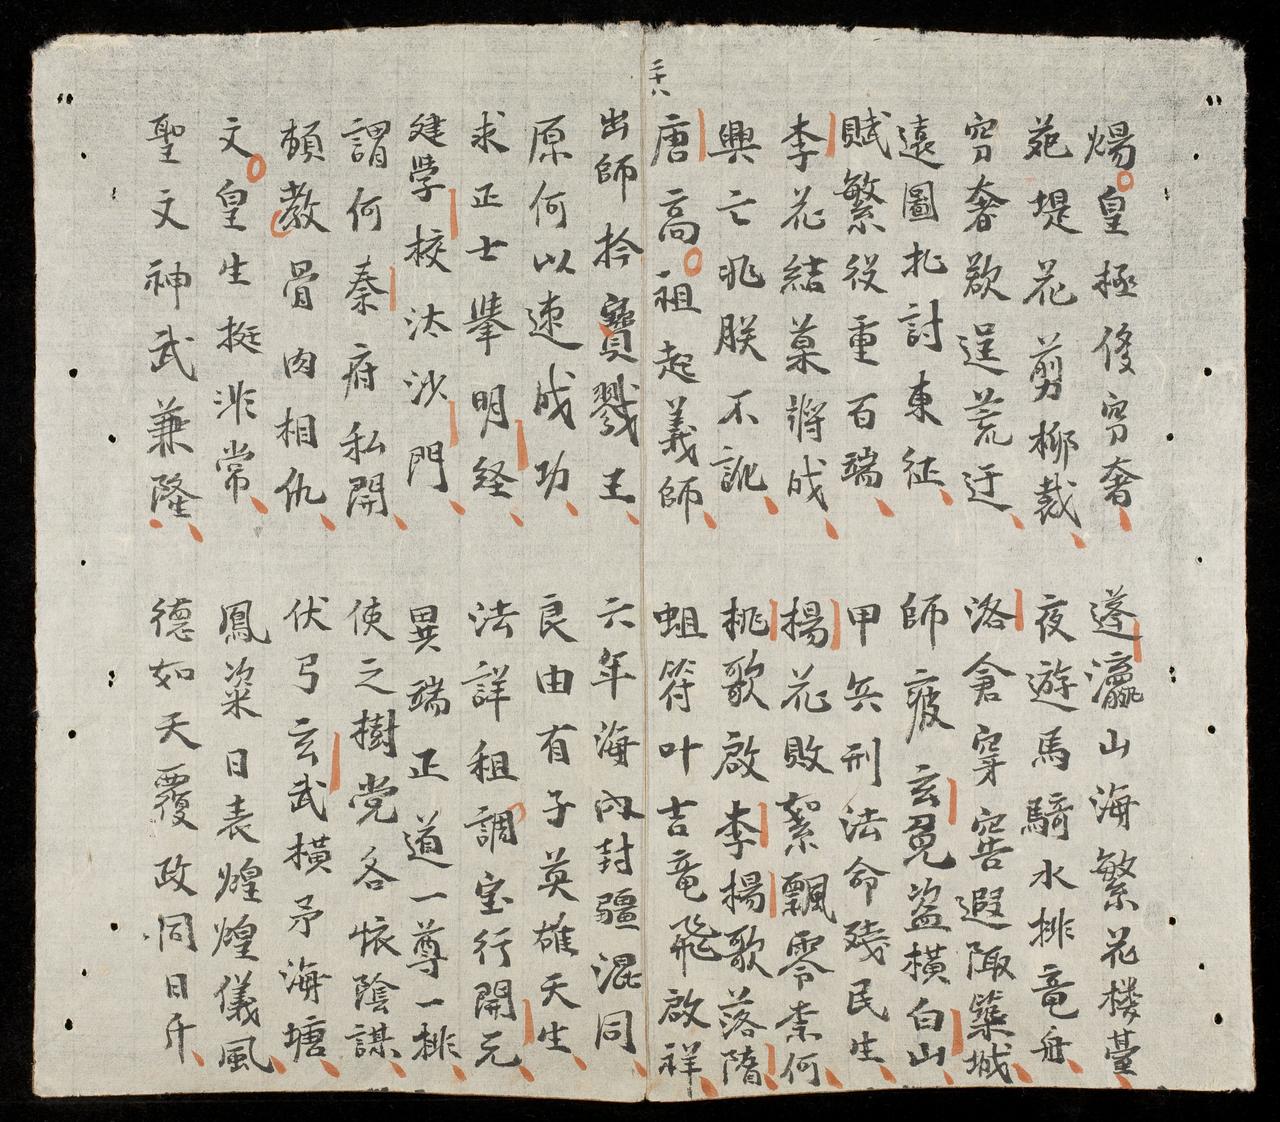 煬皇極侈穷奢 蓬瀛山海繁花楼臺
苑堤花剪柳裁 夜遊馬騎水排竜舟
穷奢歡逞荒迂 洛倉穿窖遐陬築城
遠圖北討東征 師疲玄菟盜橫白山
賦繁役重百端 甲兵刑法命殘民生
李花結菓將成 楊花敗絮飄零柰何
興亡兆朕不訛 桃歌啟李楊歌落隋
唐高祖起義師 蛆符叶吉竜飛啟祥
出師扲寶戮王 六年海內封疆混同
原何以速成功 良由有子英雄天生
求正士舉明経 法詳租調宝行開元
建学校汰沙門 異端正道一尊一排
謂何秦府私開 使之樹党各懐陰謀
頼教骨肉相仇 伏弓玄武橫矛海塘
文皇生挺非常 鳳姿日表煌煌儀風
聖文神武兼隆 德如天覆政同日升